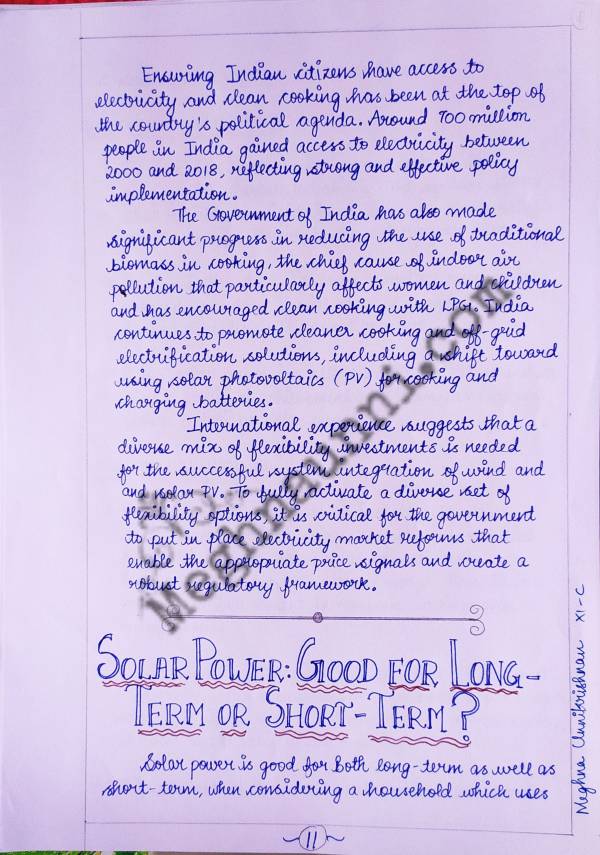 Ensuring Indian citizens have access to
electricity and clean cooking has been at the top of
the country's political agenda. Around 700 million
people in India gained access to electricity between
2000 and 2018, reflecting strong and effective policy
implementation.
The Government of India has also made
significant progress in reducing the use of traditional
biomass in cooking, the chief cause of indoor air
pollution that particularly affects women and children
and has encouraged clean cooking with LPG. India
continues to promote cleaner cooking and off-grid
electrification solutions, including a shift toward
using solar photovoltaics (PV) for cooking and
charging batteries.
International experience suggests that a
diverse mix of flexibility investments is needed
for the successful system integration of wind and
and solar PV. To fully activate a diverse set of
flexibility options, it is critical for the government
to put in place electricity market reforms that
enable the appropriate price signals and create a
robust regulatory framework.
SOLAR POWER: GOOD FOR LONG-
TERM OR SHORT-TERM?
Solar power is good for both long-term as well as
short-term, when considering a household which uses
11
Meghna Unnikrishnan XI-C
Meghnaunni.com